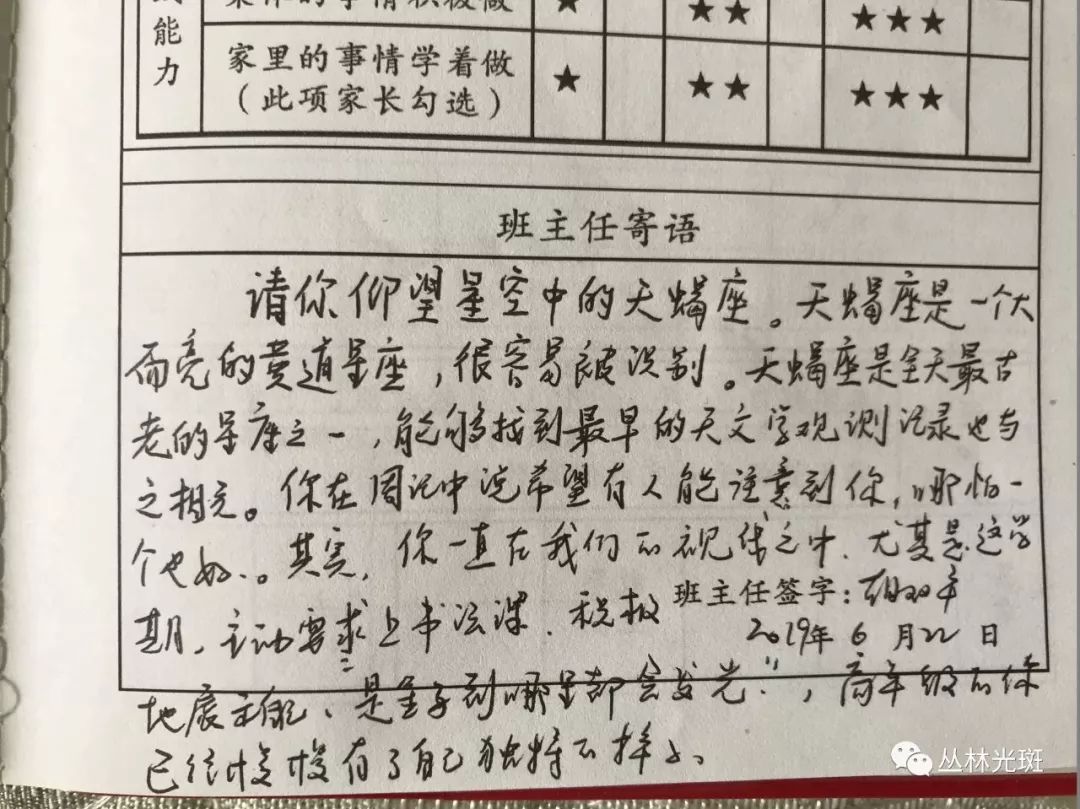 能
力
集体的事情积极做 ★ ★★ ★★★
家里的事情学着做
（此项家长勾选） ★ ★★ ★★★
班主任寄语
请你仰望星空中的天蝎座。天蝎座是一个大
而亮的黄道星座，很容易被识别。天蝎座是全天最古
老的星座之一，能够找到最早的天文学观测记录也与
之相关。你在周记中说希望有人能注意到你，哪怕一
个也好。其实，你一直在我们的视线之中，尤其是这学
期，主动要求上书法课，积极
班主任签字：
2019年 6 月22 日
地展示自己、是星子到哪里都会发光！，高年级的你
已经慢慢有了自己独特的样子、
丛林光斑